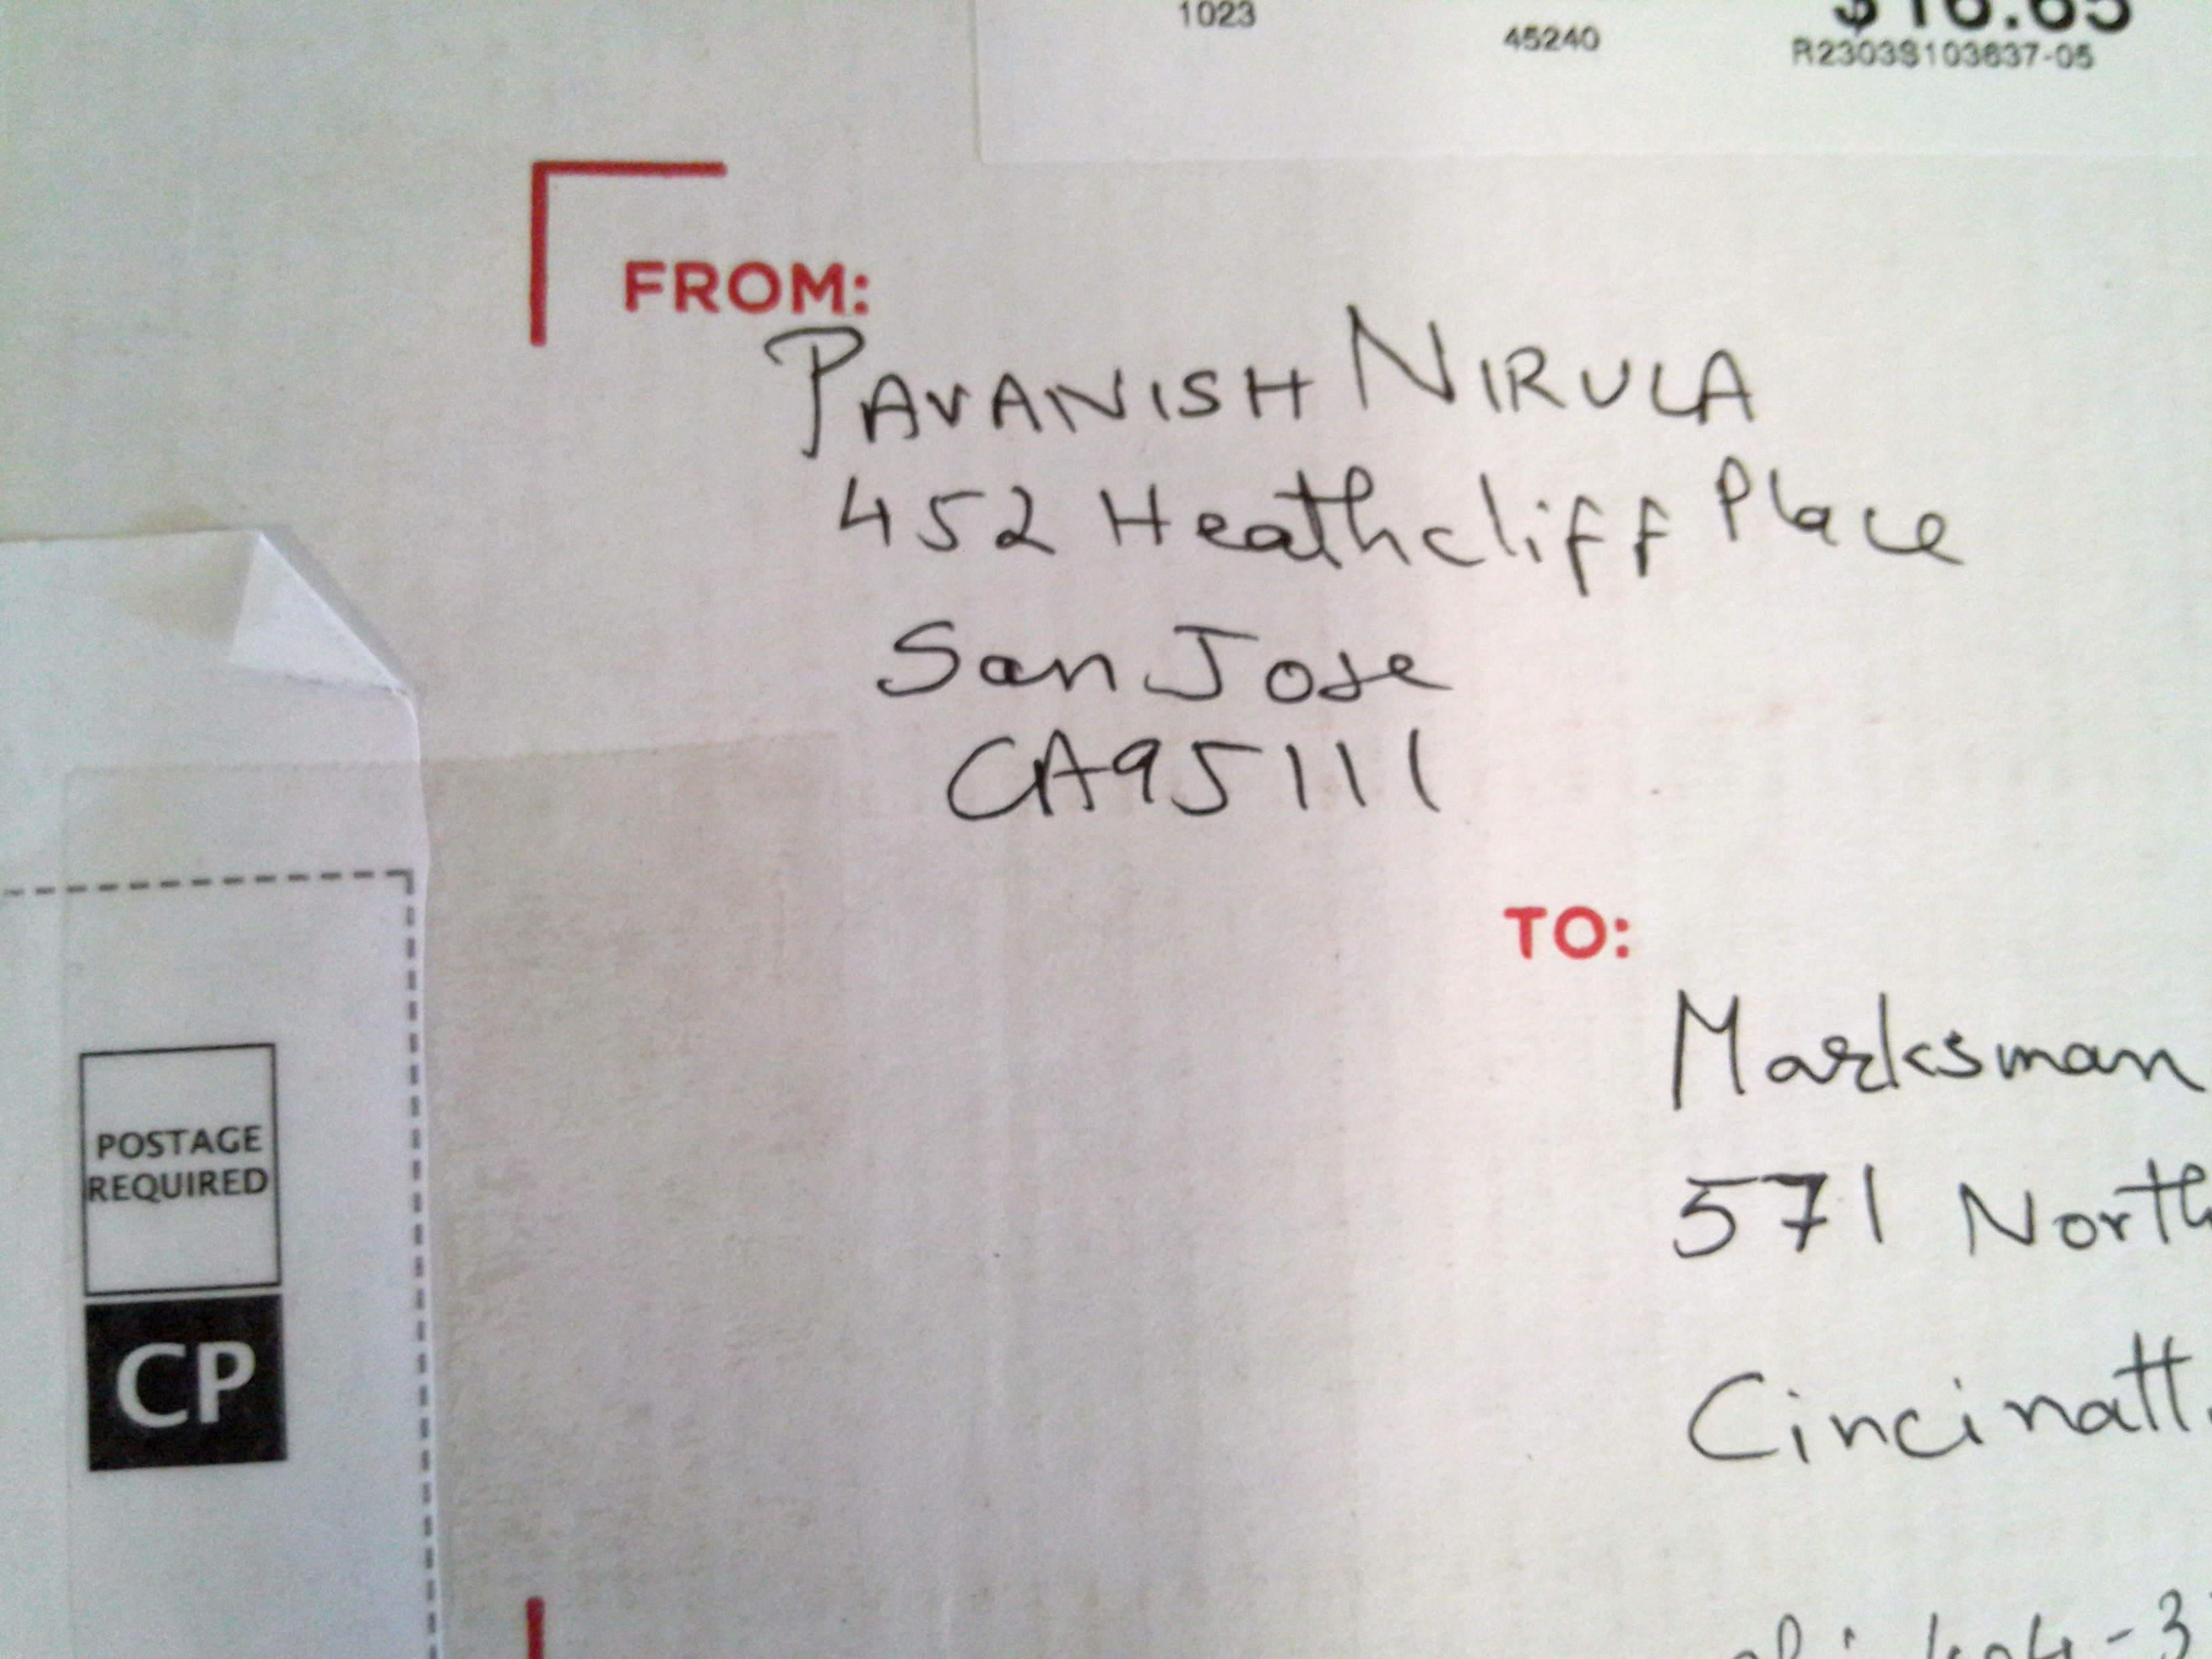 1023
45240
$16.65
R2303S103637-05
FROM:
PAVANISH NIRULA
452 Heathcliff Place
San Jose
CA95111
TO:
Marksman
571 North
Cincinatt
POSTAGE
REQUIRED
CP